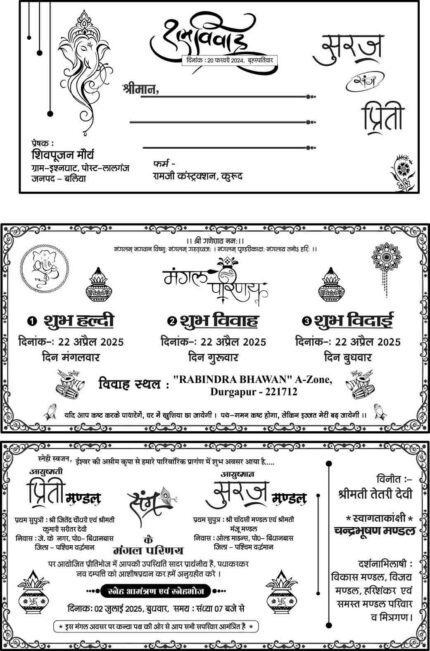 शुभ विवाह
दिनांक : 20 फरवरी 2024, बृहस्पतिवार
सुरज
संग
प्रिती
श्रीमान,
प्रेषक :
शिवपूजन मौर्य
ग्राम-इश्नघाट, पोस्ट-लालगंज
जनपद – बलिया
फर्म -
रामजी कंस्ट्रक्शन, कुरूद
।। श्री गणेशाय नमः।।
मंगलम् भगवान विष्णु, मंगलम् गरुड़ध्वजः। मंगलम् पुण्डरीकाक्षः मंगलाय तनोऽ हरिः ।।
मंगल परिणय
1 शुभ हल्दी
दिनांक-: 22 अप्रैल 2025
दिन मंगलवार
2 शुभ विवाह
दिनांक-: 22 अप्रैल 2025
दिन गुरूवार
3 शुभ विदाई
दिनांक-: 22 अप्रैल 2025
दिन बुधवार
विवाह स्थल : "RABINDRA BHAWAN" A-Zone,
Durgapur - 221712
यदि आप कष्ट करके पायारेगें, घर में खुशिया छा जायेगी । पथे-गमन कष्ट होगा, लेकिन इज्जत मेरी बढ़ जायेगी ।।
स्नेही स्वजन, ईश्वर की असीम कृपा से हमारे पारिवारिक प्रागंण में शुभ अवसर आया है,....
आयुष्मती
प्रिती मण्डल
संग
आयुष्मान
सुरज मण्डल
प्रथम सुपुत्री : श्री जितेंद्र चौधरी एवं श्रीमती
कुमारी सरीता देवी
निवास : जे. के. नगर, पो०– बिधानबास
जिला – पश्चिम वर्द्धमान
प्रथम सुपुत्र : श्री चांदसी मण्डल एवं श्रीमती
मंजू मण्डल
निवास : ओल्ड माइन्स, पो०– बिधानबास
जिला – पश्चिम वर्द्धमान
के
मंगल परिणय
पर आयोजित प्रीतिभोज में आपकी उपस्थिति सादर प्रार्थनीय है, पधारकर
नव दम्पति को आशीषप्रदान कर हमें अनुग्रहीत करे ।
स्नेह आमंत्रण एवं स्नेहभोज
दिनांक: 02 जुलाई 2025, बुधवार, समय : संध्या 07 बजे से
* इस मंगल अवसर पर कन्या पक्ष की ओर से आप सभी सपरिवार आमंत्रित हैं *
विनीत :–
श्रीमती तेतरी देवी
* स्वागताकांक्षी *
चन्द्रभूषण मण्डल
दर्शनाभिलाषी :
विकास मण्डल, विजय
मण्डल, हरिशंकर एवं
समस्त मण्डल परिवार
व मित्रगण।